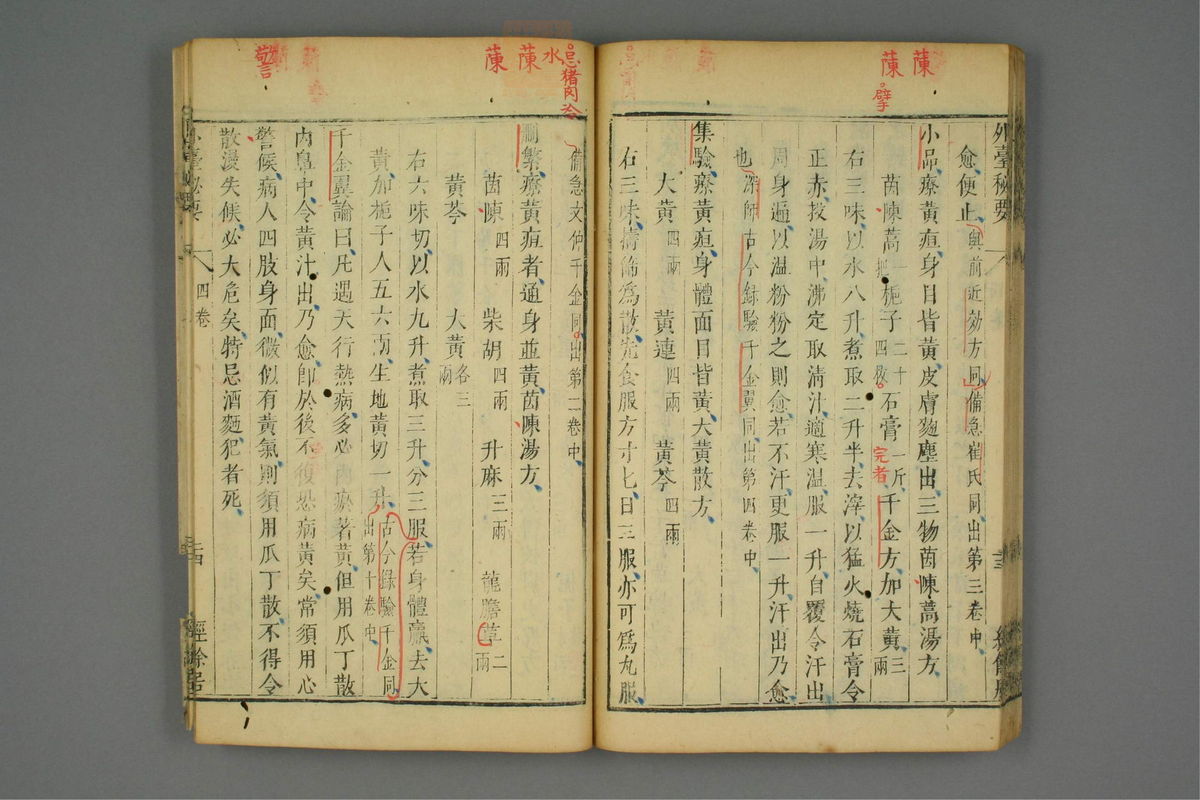 蔯
蔯
擘
外臺秘要
愈便止與前近効方同備急崔氏同出第三卷中
小品療黃疸身目皆黃皮膚麴塵出三物茵陳蒿湯方
茵陳蒿一把梔子二十四枚石膏一斤千金方加大黃三兩
完者
右三味以水八升煮取二升半去滓以猛火燒石膏令
正赤投湯中沸定取清汁適寒温服一升自覆令汗出
周身遍以温粉粉之則愈若不汗更服一升汗出乃愈
也深師古今録驗千金翼同出第四卷中
集驗療黃疸身體面目皆黃大黃散方
大黃四兩 黃連四兩 黃芩四兩
右三味擣篩為散先食服方寸匕日三服亦可為丸服
忌猪肉冷
水
蔯
蔯
警
備急文仲千金同出第二卷中
刪繁療黃疸者通身並黃茵陳湯方
茵陳四兩 柴胡四兩 升麻三兩 龍膽草二兩
黃芩 大黃各三兩
右六味切以水九升煮取三升分三服若身體羸去大
黃加梔子人五六兩生地黃切一升古今録驗千金同出第十卷中
千金翼論曰凡遇天行熱病多必內瘀著黃但用瓜丁散
內鼻中令黃汁出乃愈即於後不復恐病黃矣常須用心
警候病人四肢身面微似有黃氣則須用瓜丁散不得令
散漫失候必大危矣特忌酒麵犯者死
四卷
經餘居